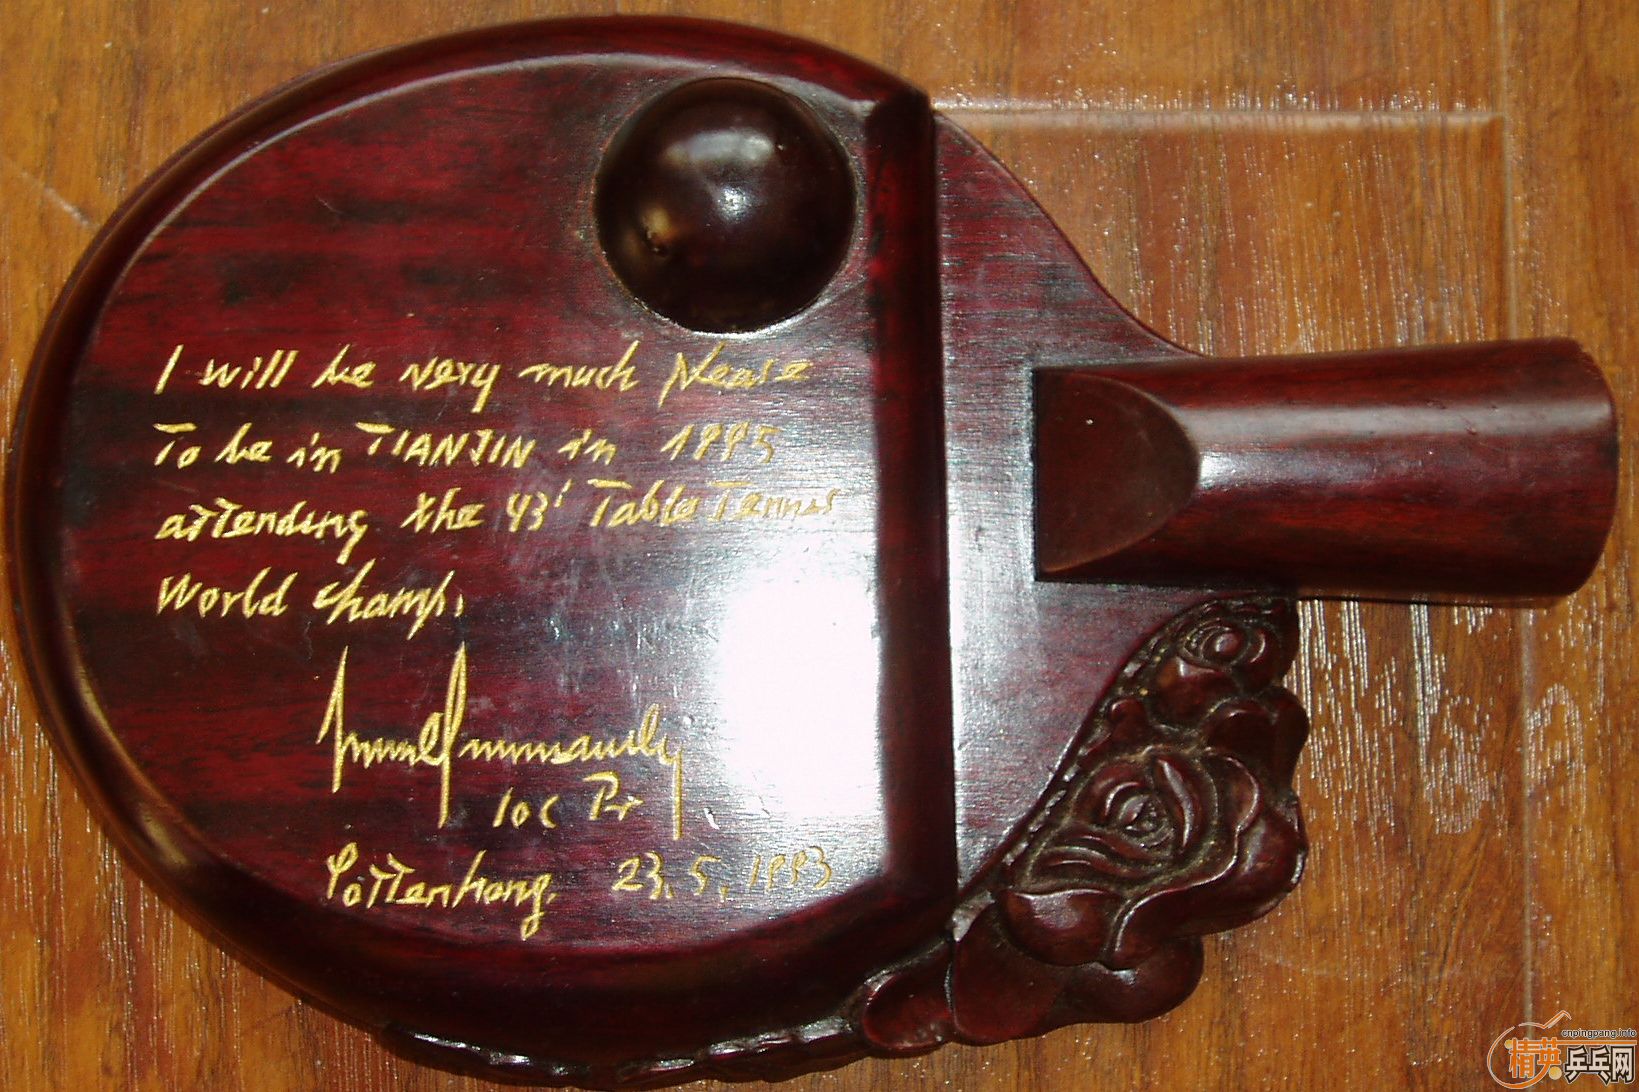 I will be very much please
To be in TIANJIN in 1995
attending the 43' Table Tennis
World champ.
IOC Pr
23.5.1993
cnpingpang.info
精英乒乓网